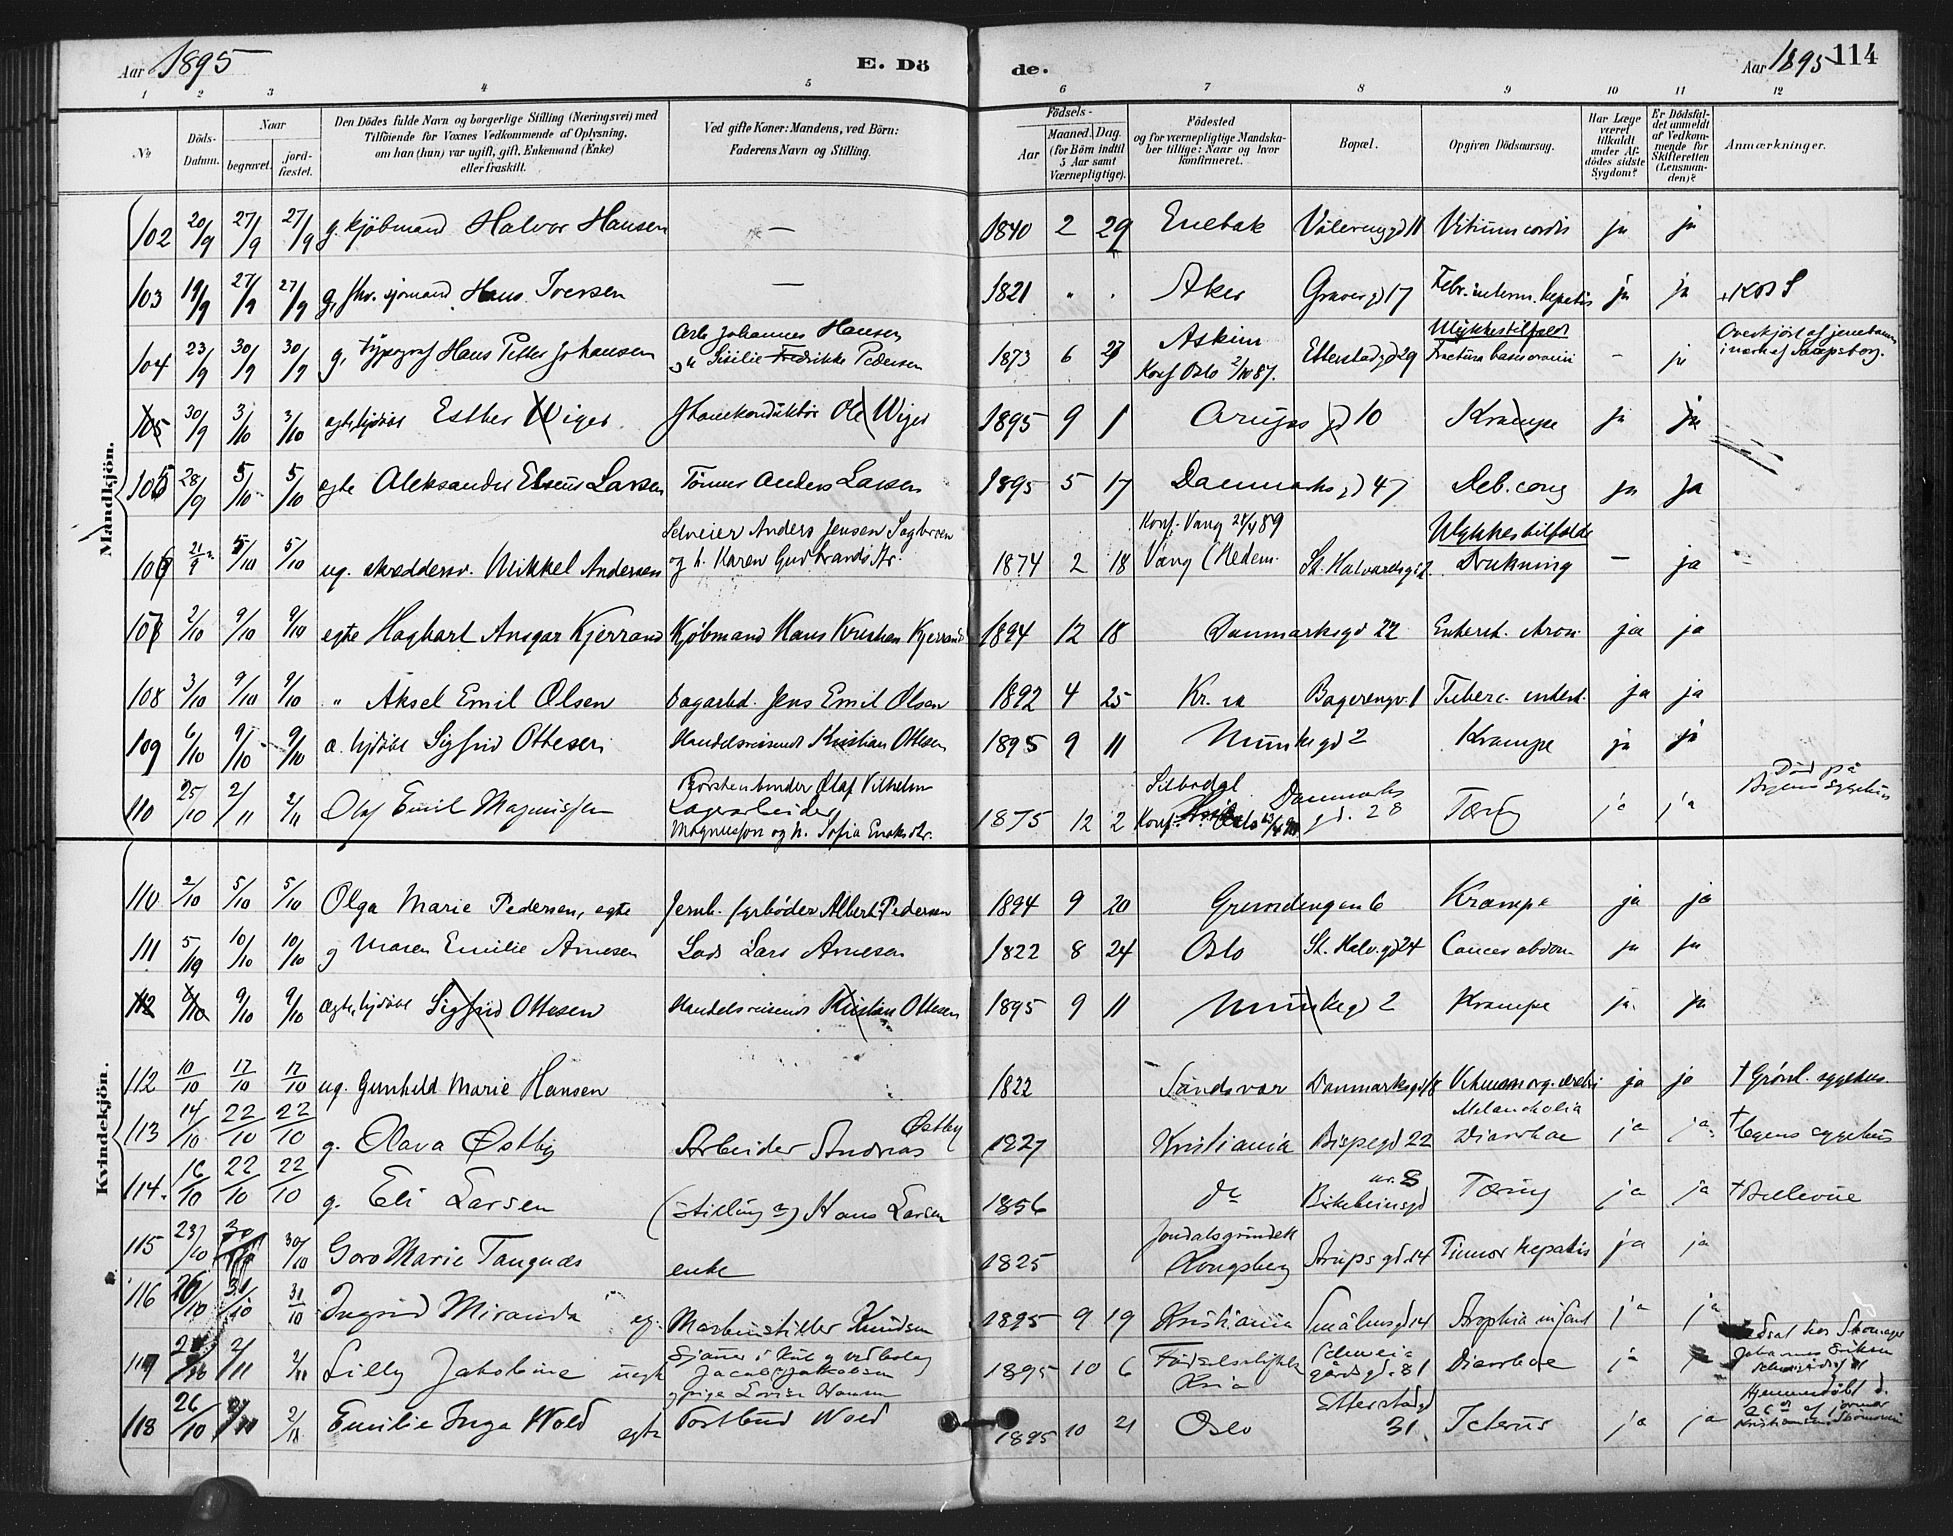 Aar 1895 E. Döde. Aar 1895 114
1 2 3 4 5 6 7 8 9 10 11 12
No
Döds-Datum.
Naar
begravet.
jord-fæstet.
Den Dödes fulde Navn og borgerlige Stilling (Næringsvei) med
Tilföiende for Voxnes Vedkommende af Oplysning,
om han (hun) var ugift, gift, Enkemand (Enke)
eller fraskilt.
Ved gifte Koner: Mandens, ved Börn:
Faderens Navn og Stilling.
Födsels-
Aar
Maaned. Dag.
(for Börn indtil
5 Aar samt
Værnepligtige).
Födested
og for værnepligtige Mandska-
ber tillige: Naar og hvor
konfirmeret.
Bopæl.
Opgiven Dödsaarsag.
Har Læge
været
tilkaldt
under Af-
dødes sidste
Sygdom?
Er Dödsfal-
det anmeldt
af Vedkom-
mende for
Skifteretten
(Lensman-
den)?
Anmærkninger.
Mandkjön.
102 20/9 27/9 27/9 g. kjöbmand Halvor Hansen — 1840 2 29 Enebak Vålerenggd 11 Vitium cordis ja ja
103 19/9 27/9 27/9 g. fhv. sjømand Hans Iversen — 1821 " . Aker Gravergd 17 Febr. interm. hepatis ja ja
104 23/9 30/9 30/9 g. typograf Hans Petter Johansen
Arb. Johannes Hansen
Sisilie Fredrikke Pedersen
1873 6 27 Askim
Konf Oslo 2/10 87.
Etterstadgd 29
Ulykkestilfælde
Fractura basis cranii — ja
Overkjört af jernebanen
i nærh. af Sarpsborg.
105 30/9 3/10 3/10 egte, hjdöbt Esther Wiger Ole Wiger 1895 9 1 10 Krampe ja ja
105 28/9 5/10 5/10 egte Aleksander Larsen Anders Larsen 1895 5 17 Danmarksgd 47 Deb. cong ja ja
106 21/9 5/10 5/10 ug. skreddersv. Mikkel Andersen
Selveier Anders Jensen
og h. Karen Gudbrandsdtr.
1874 2 18
Konf. Vang 89
Vang (Hedem.
St. Halvardsgd 2.
Ulykkestilfælde
Drukning — ja
107 2/10 9/10 9/10 egte Hagbart Ansgar Kjerrand Kjöbmand Hans Kristian Kjerrand 1894 12 18 Danmarksgd 22 Enterit. chron. ja ja
108 3/10 9/10 9/10 " Aksel Emil Olsen Dagarbd. Jens Emil Olsen 1892 4 25 Kr.ia 1 Tuberc. intest. ja ja
109 6/10 9/10 9/10 æ. hjdöbt Sigfrid Ottesen Handelsreisende Kristian Ottesen 1895 9 11 Munkegd 2 Krampe ja ja
110 25/10 2/11 2/11 Olaf Emil Magnussen
Börstenbinder Olaf Vilhelm
Lagerarbeider
Magnussen og h. Sofia
1875 12 2
Silbodal
Konf. Oslo
Danmarks
gd. 28
Tæring ja ja
Död på
Byens Sygehus
Kvindekjön.
110 2/10 5/10 5/10 Olga Marie Pedersen, egte Jernb. fyrböder Albert Pedersen 1894 9 20 6 Krampe ja ja
111 5/10 10/10 10/10 g Maren Emilie Arnesen Lods Lars Arnesen 1822 8 24 Oslo St. Halv.gd 24 Cancer abdom. ja ja
112 6/10 9/10 9/10 ægte, hjdöbt Sigfrid Ottesen Handelsreisende Kristian Ottesen 1895 9 11 Munkegd 2 Krampe ja. ja
112 10/10 17/10 17/10 ug. Gunhild Marie Hansen 1822 Sandsvær Danmarksgd 18 ja ja † Grönl. sygehus
113 14/10 22/10 22/10 g. Olava Østby Arbeider Andreas Østby 1827 Kristiania Bispegd 22
Melancholia
Diarrhoe ja ja † Egens sygehus
114. 16/10 22/10 22/10 g. Eli Larsen (stilling ?) Hans Larsen 1856 do
Birkebeinsgd nr. 8 Tæring ja ja † Bellevue
115 23/10 30/10 30/10 Goro Marie Tangnæs enke 1825
Kongsberg Strupsgd. 14 Tumor hepatis ja ja
116 26/10 31/10 31/10 Ingrid Miranda eg. Knudsen 1895 9 19 Kristiania Smålensgd 14 Atrophia infant ja ja
117 2/11 2/11 Lilly Jakobine uegte
Sjauer i kul og vedhandel
Jacob Jakobsen
og pige Lovise Hansen
1895 10 6 Födselsstiftelsen
Kria
Schweia
gårdsgd. 81 Diarrhoe ja
hos Skomager
Johannes Eriksen
118 26/10 2/11 Emilie Inga Wold egte Postbud Wold 1895 10 21 Oslo Etterstadgd
31. Icterus ja ja
Hjemmedöbt d.
26 af jormor